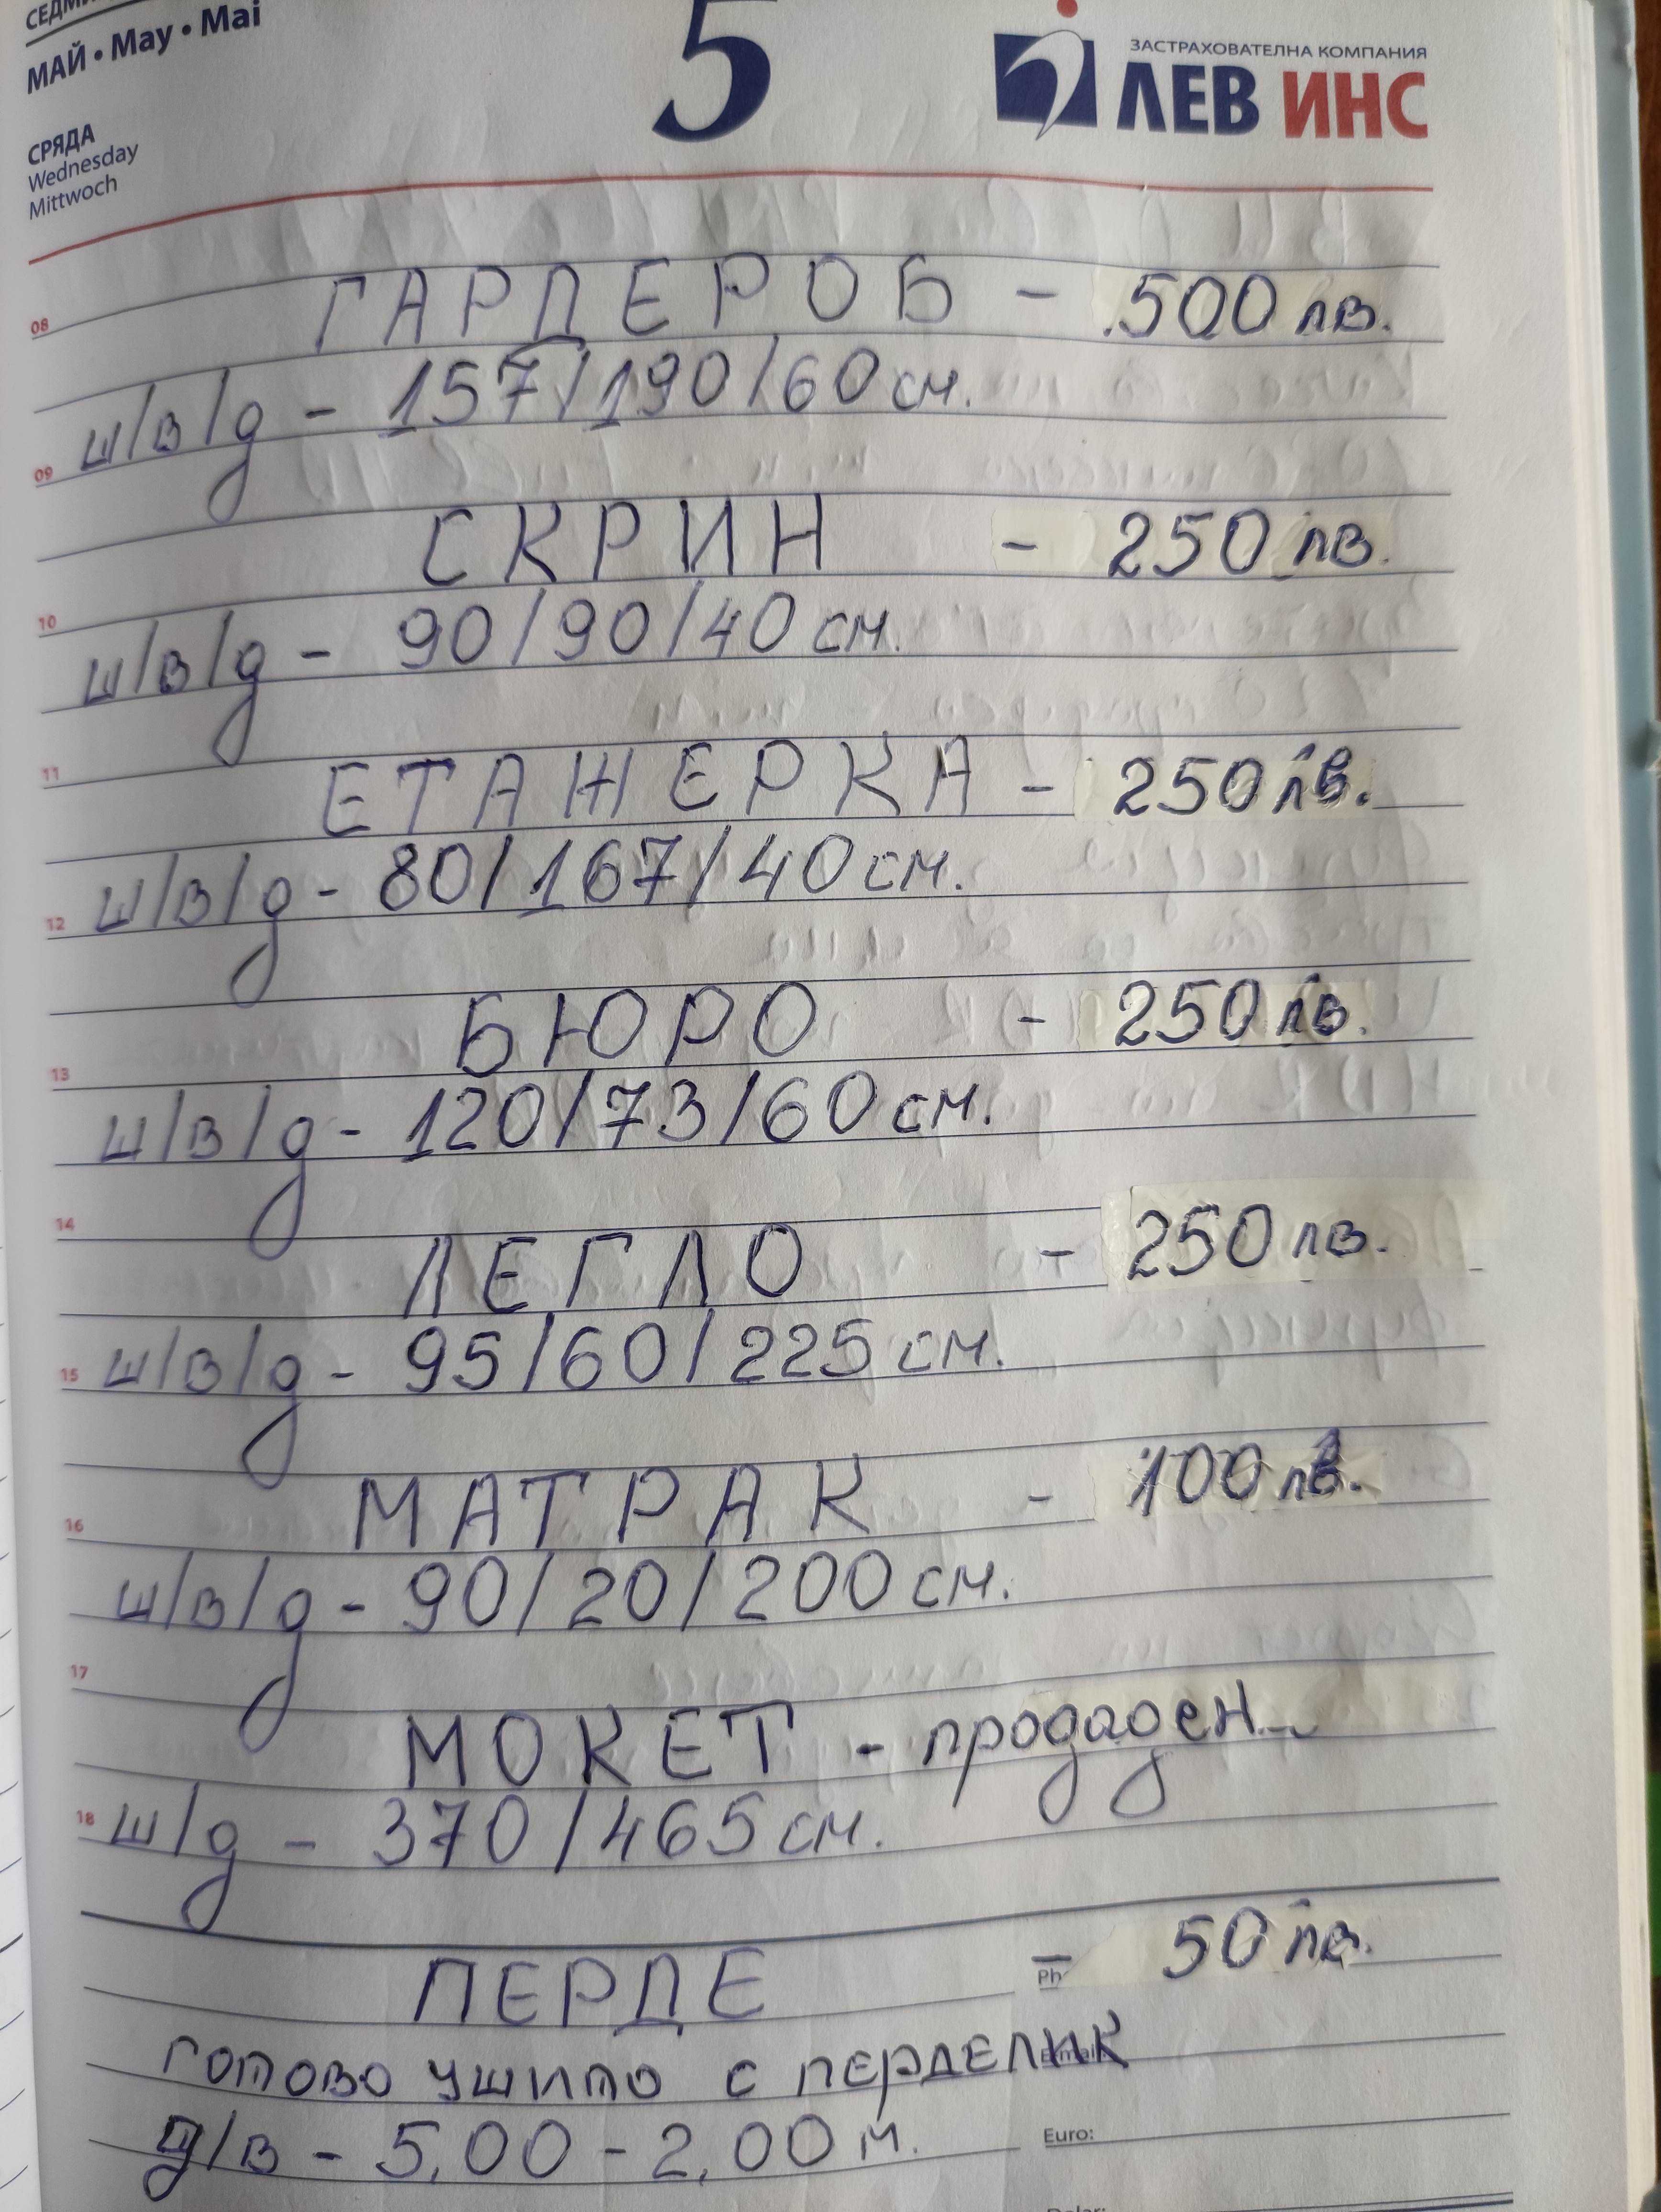 МАЙ • May • Mai
5
ЗАСТРАХОВАТЕЛНА КОМПАНИЯ
ЛЕВ ИНС
СРЯДА
Wednesday
Mittwoch
08
ГАРДЕРОБ - 500 лв.
ш/в/д - 157/190/60 см.
09
СКРИН - 250 лв.
10
ш/в/д - 90/90/40 см.
11
ЕТАЖЕРКА - 250 лв.
ш/в/д - 80/167/40 см.
12
БЮРО - 250 лв.
13
ш/в/д - 120/73/60 см.
14
ЛЕГЛО - 250 лв.
15
ш/в/д - 95/60/225 см.
МАТРАК - 100 лв.
16
ш/в/д - 90/20/200 см.
17
МОКЕТ - продаден
18
ш/д - 370/465 см.
ПЕРДЕ - 50 лв.
Ph
готово ушито с перделик
д/в - 5,00 - 2,00 м.
Euro: